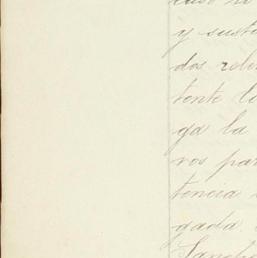 y susto
dos rele
tente lo
ga la
ros par
tencia
gada
Sanche